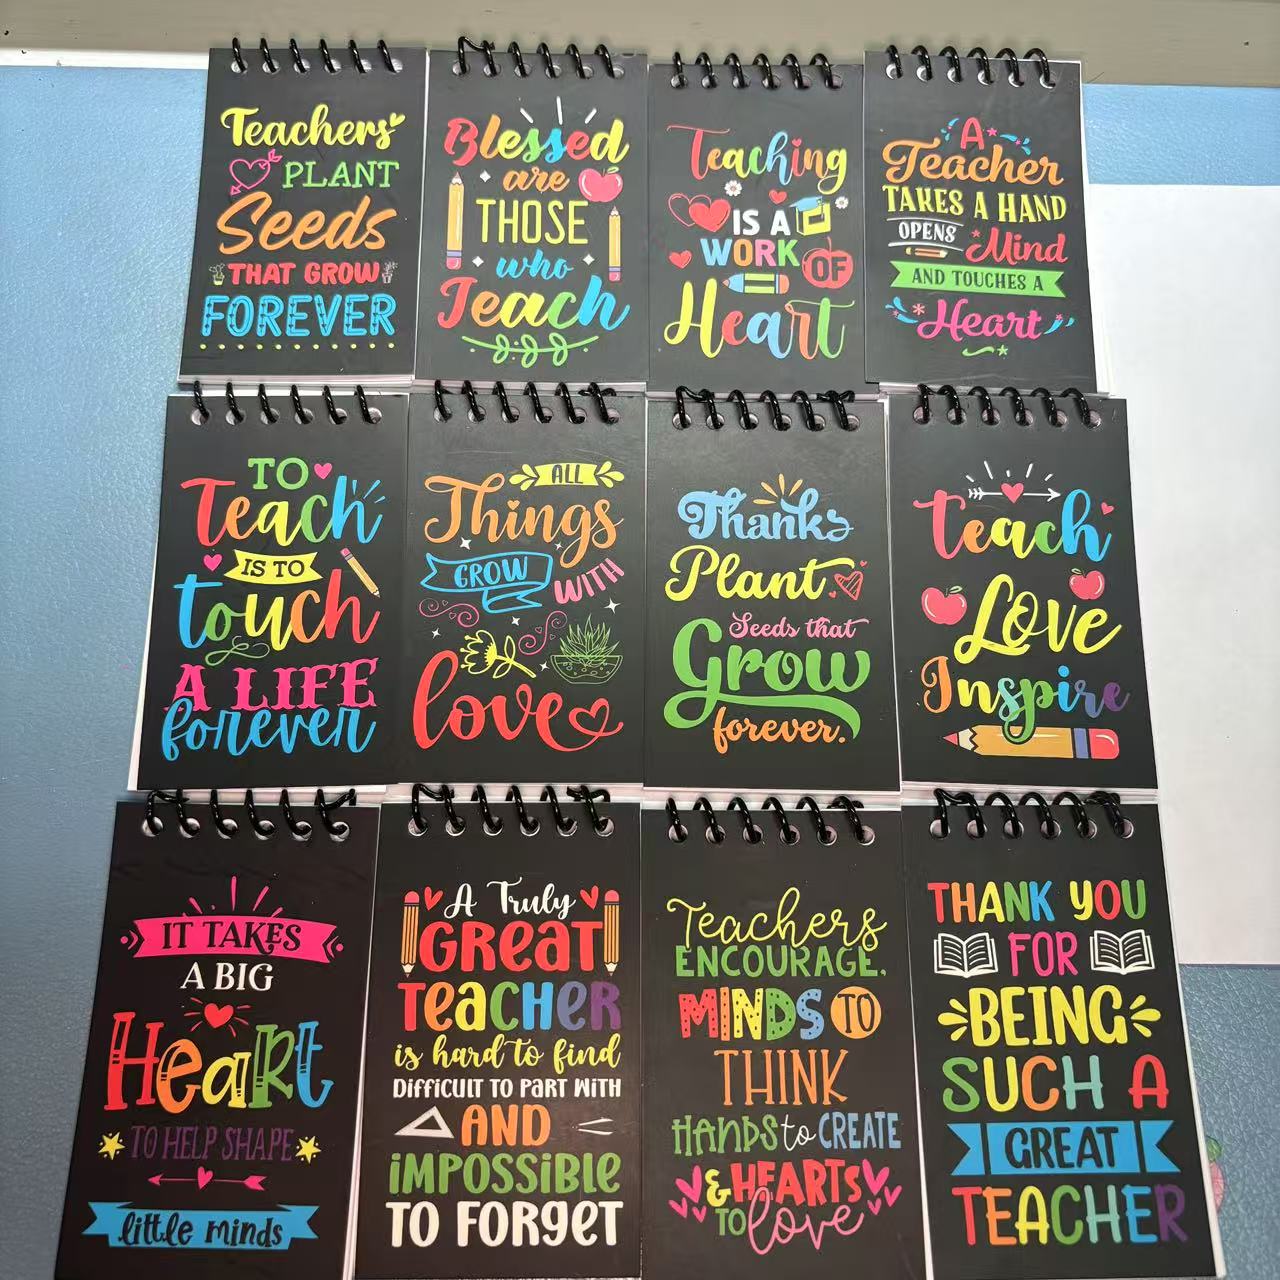 Teachers
PLANT
Seeds
THAT GROW
FOREVER
Blessed
are
THOSE
who
Teach
Teaching
IS A
WORK OF
Heart
A
Teacher
TAKES A HAND
OPENS Mind
AND TOUCHES A
Heart
TO
Teach
IS TO
touch
A LIFE
forever
ALL
Things
GROW WITH
love
Thanks
Plant
Seeds that
Grow
forever.
Teach
Love
Inspire
IT TAKES
A BIG
Heart
TO HELP SHAPE
little minds
A Truly
GREAT
TEACHER
is hard to find
DIFFICULT TO PART WITH
AND
IMPOSSIBLE
TO FORGET
Teachers
ENCOURAGE.
MINDS TO
THINK
HANDS to CREATE
& HEARTS
TO love
THANK YOU
FOR
BEING
SUCH A
GREAT
TEACHER